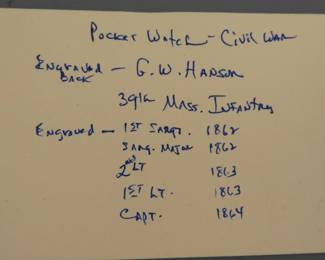 Pocket Watch - Civil War
Engraved Back - G. W. Hanson
39th Mass. Infantry
Engraved - 1st Sargt. 1862
Sarg. Major 1862
2nd Lt 1863
1st Lt. 1863
Capt. 1864